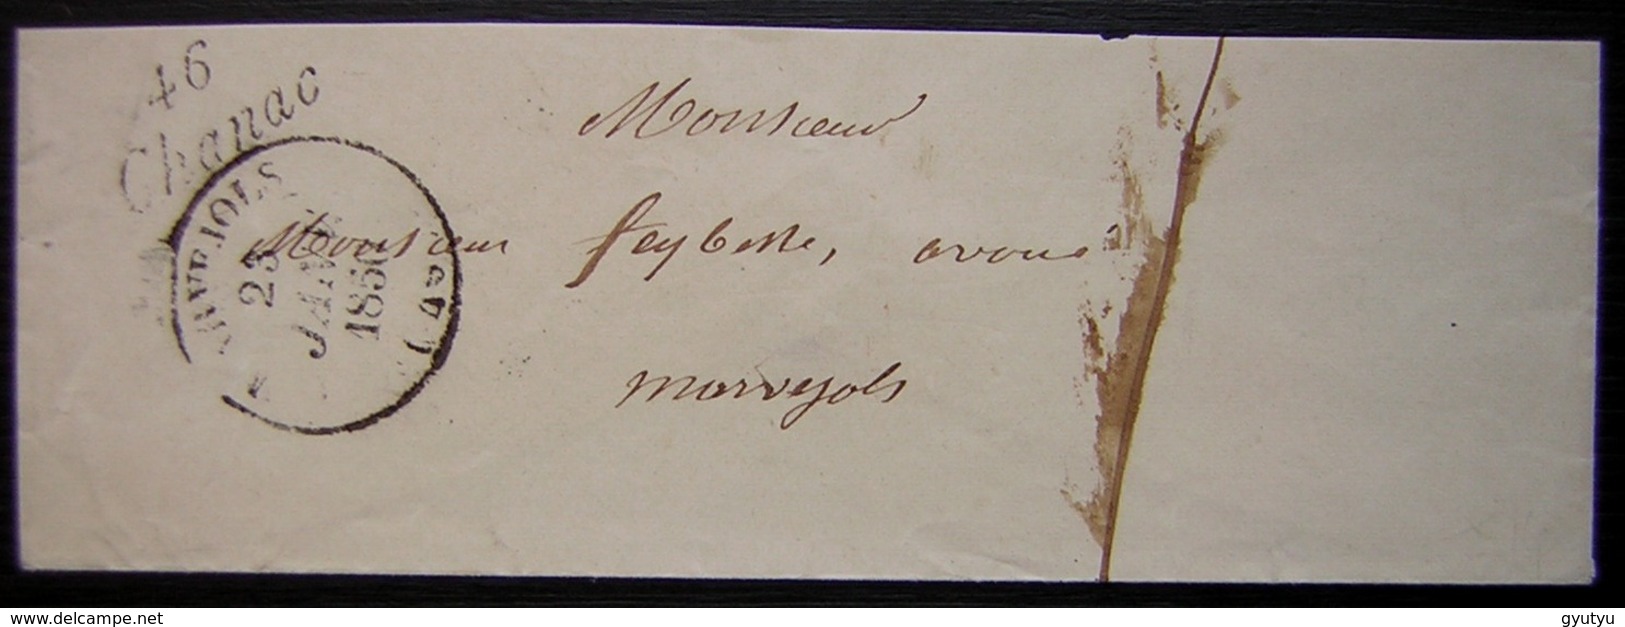 46
Chanac
MARVEJOLS
23
JANV
1850
Monsieur
Monsieur avoué
marvejols
delcampe.net
gyutyu